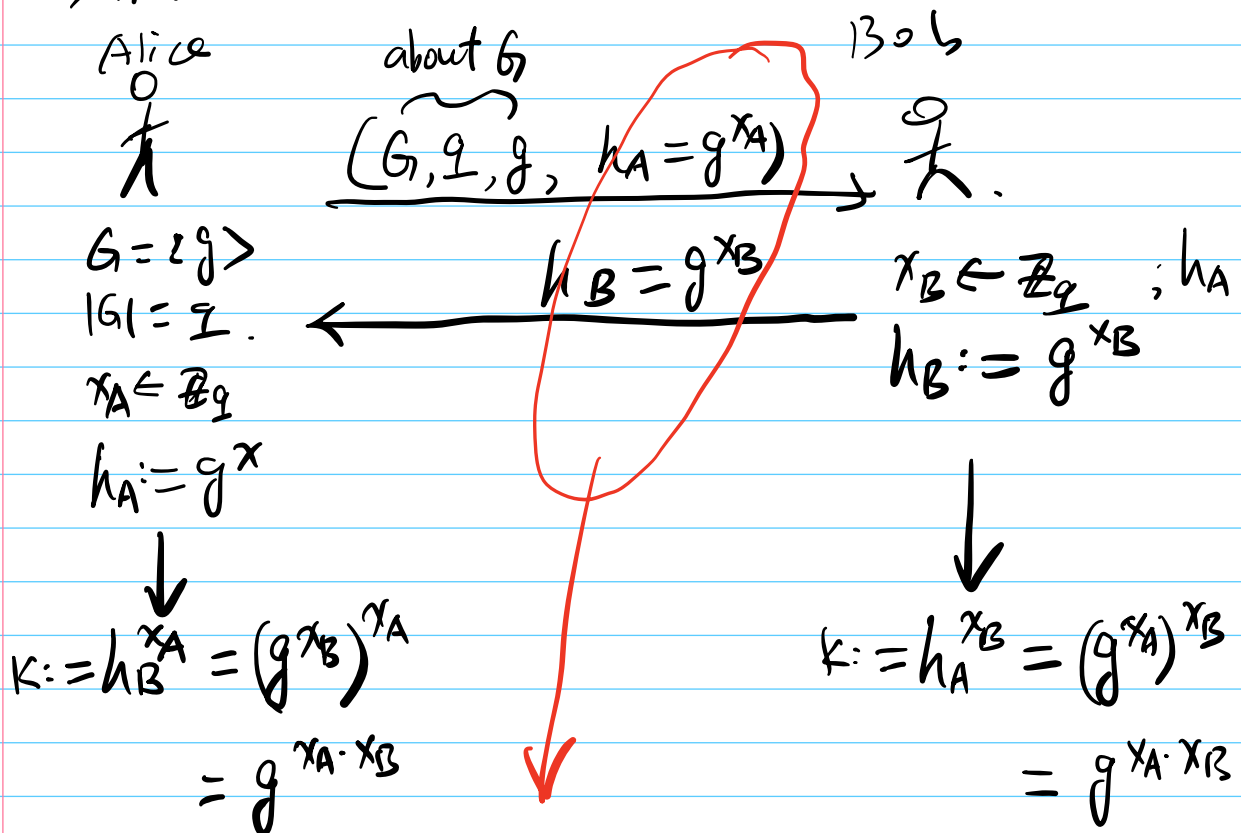 Alice about G Bob
(G, q, g, h_A = g^{x_A})
G = <g>
h_B = g^{x_B}
x_B ← Z_q ; h_A
|G| = q.
h_B := g^{x_B}
x_A ← Z_q
h_A := g^x
K := h_B^{x_A} = (g^{x_B})^{x_A}
K := h_A^{x_B} = (g^{x_A})^{x_B}
= g^{x_A · x_B}
= g^{x_A · x_B}